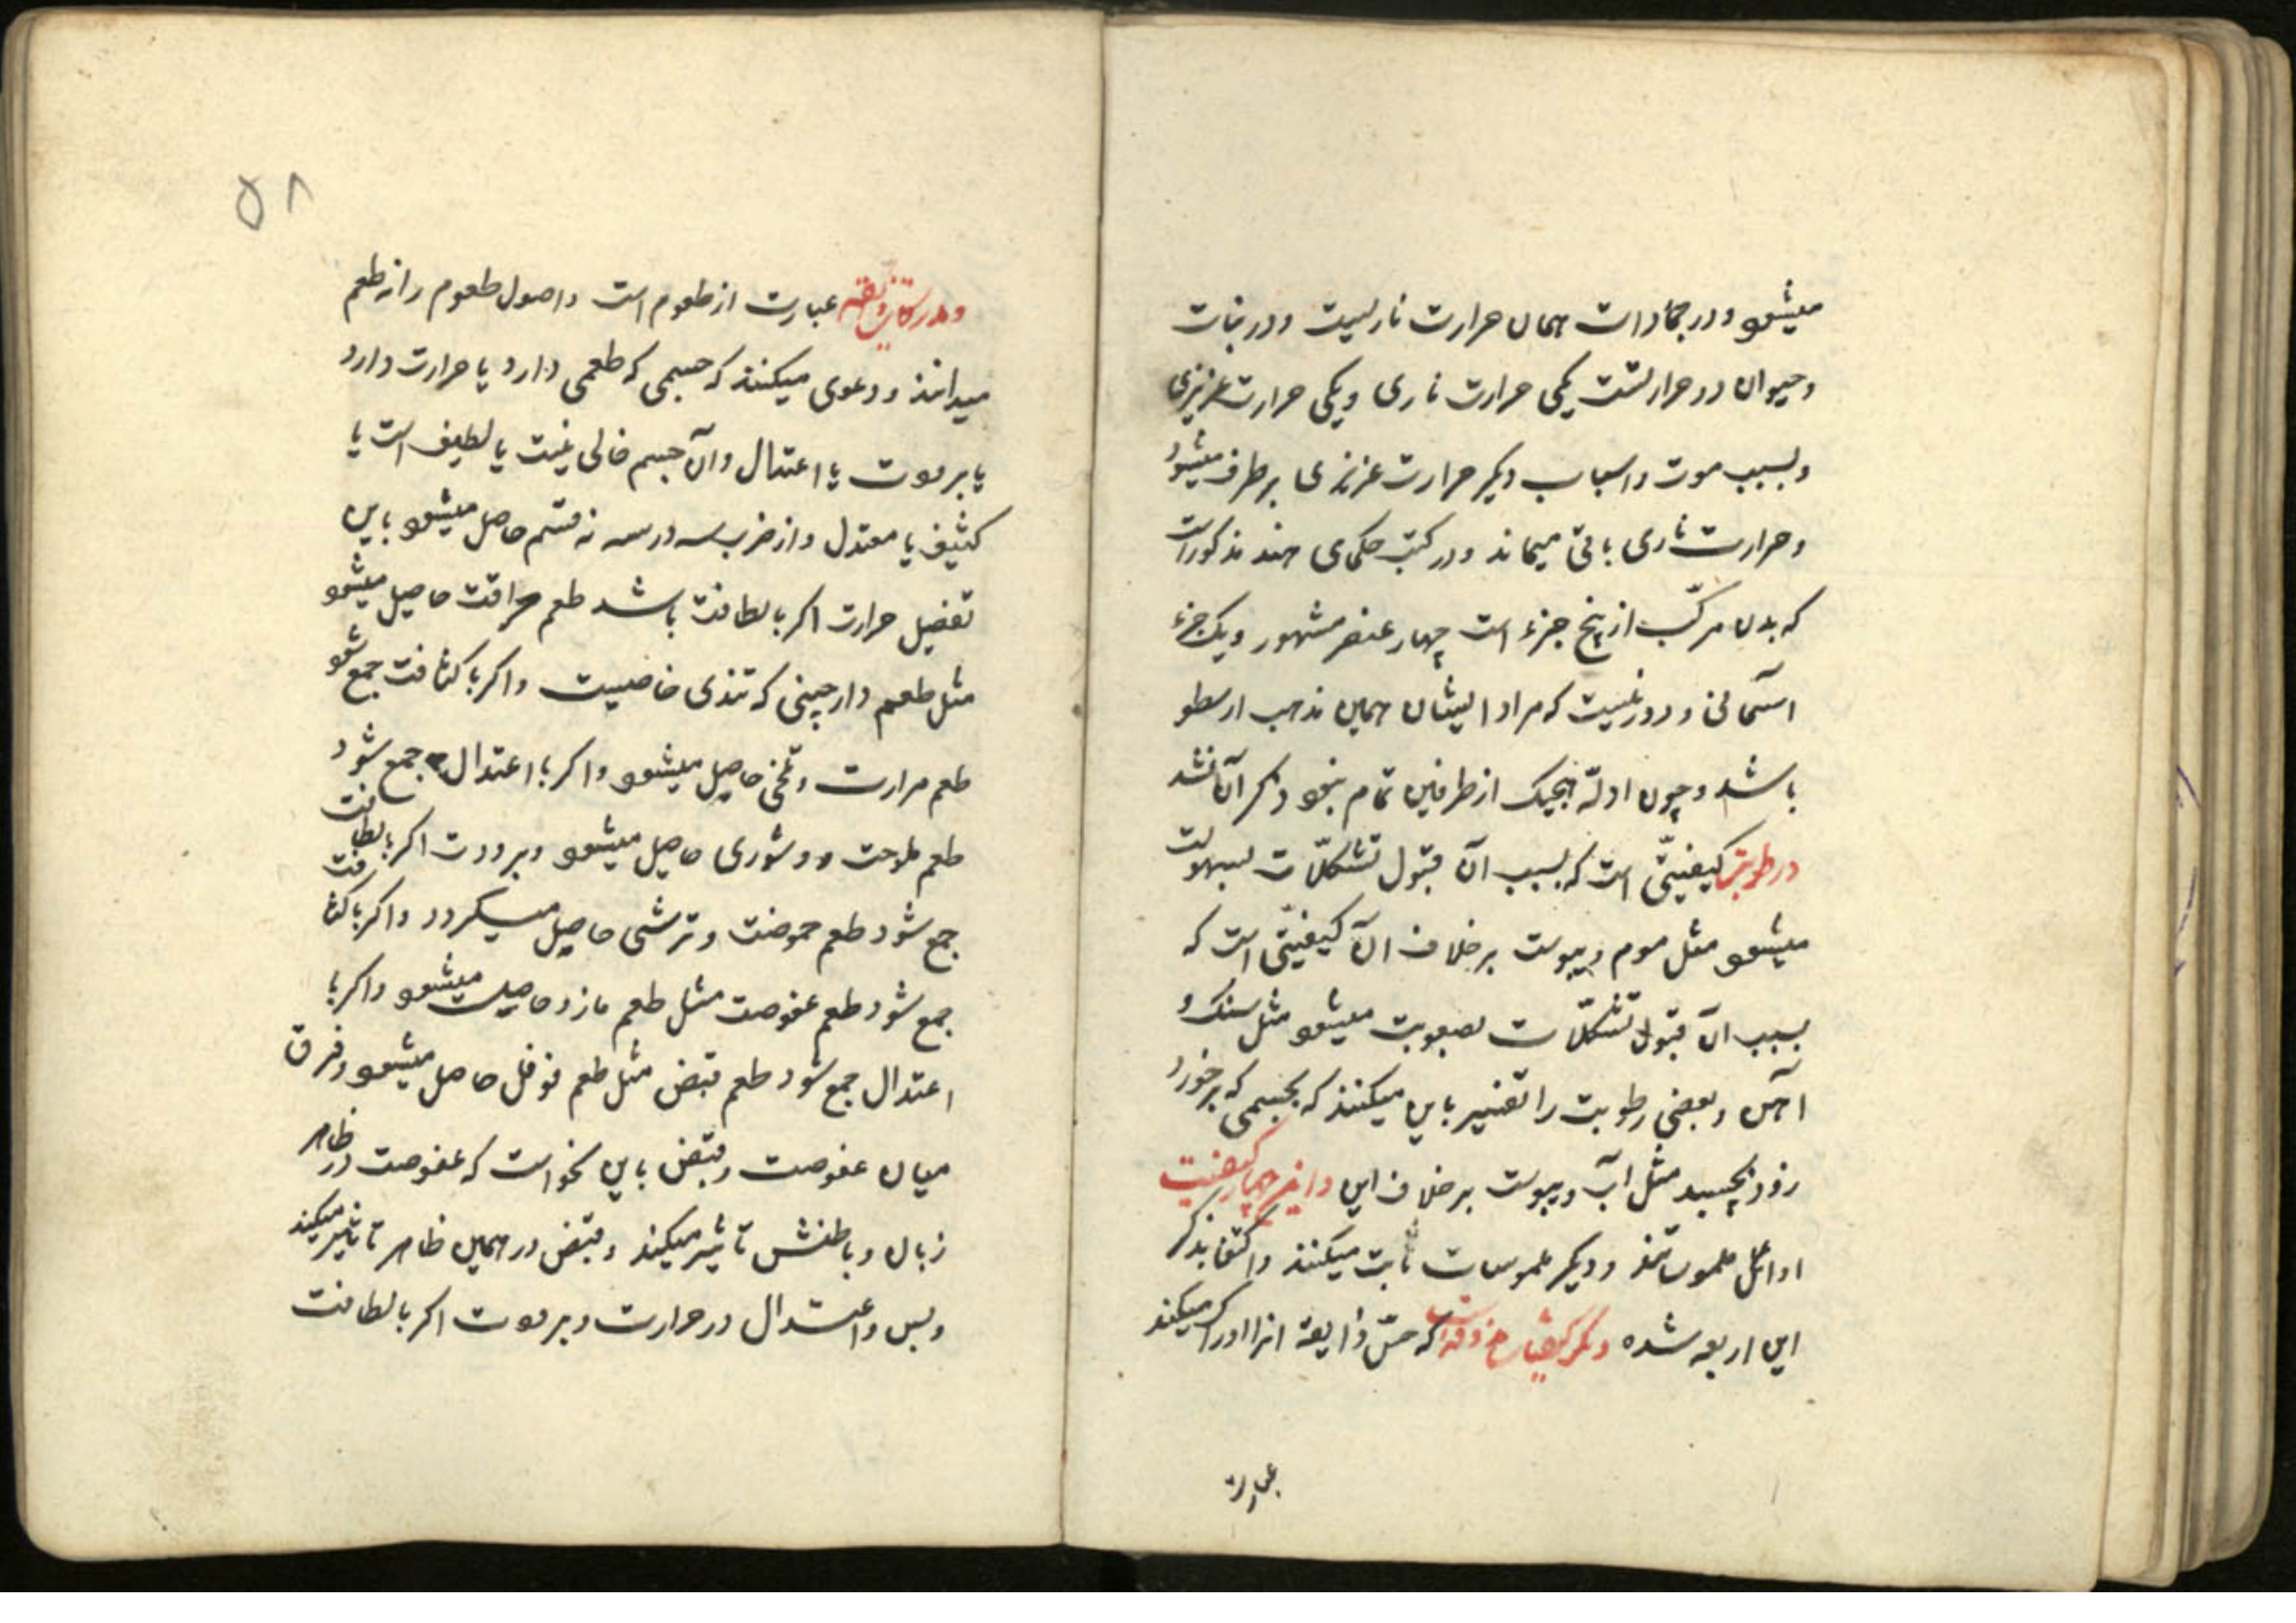 میشود و در جمادات همان حرارت ناریست و در نبات
و حیوان دو حرارتست یکی حرارت ناری و یکی حرارت غریزی
و بسبب موت و اسباب دیکر حرارت غریزی برطرف میشود
و حرارت ناری باقی میماند و در کتب حکمای هند مذکور است
که بدن مرکّب از پنج جزء است چهار عنصر مشهور و یک جزء
آسمانی و دور نیست که مراد ایشان همین مذهب ارسطو
باشد و چون ادلّه هیچیک از طرفین تمام نبود ذکر آن نشد
و رطوبت کیفیّتی است که بسبب آن قبول تشکلّات بسهولت
میشود مثل موم و یبوست برخلاف آن کیفیّتی است که
بسبب آن قبول تشکلّات بصعوبت میشود مثل سنک و
آهن و بعضی رطوبت را تفسیر باین میکنند که بجسمی که برخورد
زود بچسبد مثل آب و یبوست برخلاف این و این چهار کیفیت
اوائل ملموساتند و دیکر ملموسات ثابت میکنند و اکتفا بذکر
این اربعه شده دیکر کیفیات مذوقه است که حسّ ذایقه آنرا ادراک میکند
عبارت
و مدرکات ذایقه عبارت از طعوم است و اصول طعوم را نه طعم
میدانند و دعوی میکنند که جسمی که طعمی دارد یا حرارت دارد
یا برودت یا اعتدال و آن جسم خالی نیست یا لطیف است یا
کثیف یا معتدل و از ضرب سه در سه نه قسم حاصل میشود باین
تفصیل حرارت اکر با لطافت باشد طعم حرافت حاصل میشود
مثل طعم دارچینی که تندی خاصیست و اکر با کثافت جمع شود
طعم مرارت و تلخی حاصل میشود و اکر با اعتدال جمع شود
طعم ملوحت و شوری حاصل میشود و برودت اکر با لطافت
جمع شود طعم حموضت و ترشی حاصل میکردد و اکر با کثافت
جمع شود طعم عفوصت مثل طعم مازو حاصل میشود و اکر با
اعتدال جمع شود طعم قبض مثل طعم فوفل حاصل میشود و فرق
میان عفوصت و قبض باین نحو است که عفوصت در ظاهر
زبان و باطنش تاثیر میکند و قبض در همین ظاهر تاثیر میکند
و بس و اعتدال در حرارت و برودت اکر با لطافت
۵۸